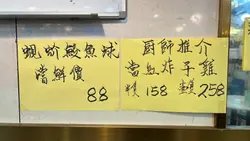 蜆蚧鯪魚球
嚐鮮價
88
廚師推介
當紅炸子雞
半隻158 壹隻258